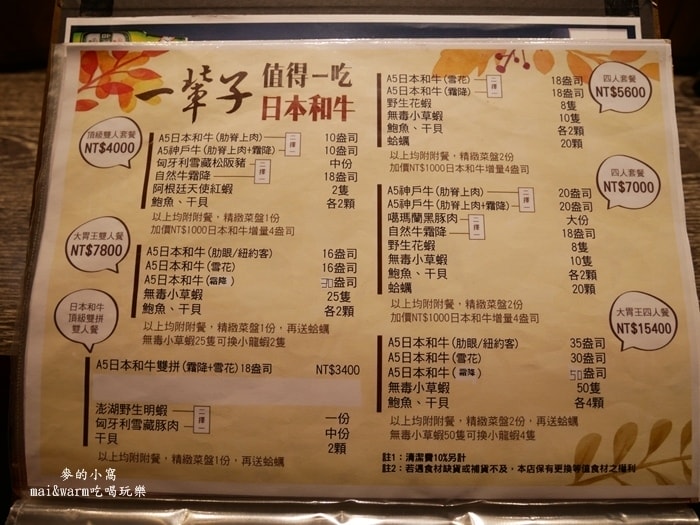 一輩子
值得一吃
日本和牛
頂級雙人套餐
NT$4000
A5日本和牛(肋脊上肉) 10盎司
二擇一
A5神戶牛(肋脊上肉+霜降) 10盎司
匈牙利雪藏松阪豬 中份
二擇一
自然牛霜降 18盎司
阿根廷天使紅蝦 2隻
鮑魚、干貝 各2顆
以上均附附餐，精緻菜盤1份
加價NT$1000日本和牛增量4盎司
大胃王雙人餐
NT$7800
A5日本和牛(肋眼/紐約客) 16盎司
A5日本和牛(雪花) 16盎司
A5日本和牛(霜降) 30盎司
無毒小草蝦 25隻
鮑魚、干貝 各2顆
以上均附附餐，精緻菜盤1份，再送蛤蠣
無毒小草蝦25隻可換小龍蝦2隻
日本和牛
頂級雙拼
雙人餐
A5日本和牛雙拼(霜降+雪花)18盎司 NT$3400
澎湖野生明蝦 一份
二擇一
匈牙利雪藏豚肉 中份
干貝 2顆
以上均附附餐，精緻菜盤1份，再送蛤蠣
四人套餐
NT$5600
A5日本和牛(雪花) 18盎司
二擇一
A5日本和牛(霜降) 18盎司
野生花蝦 8隻
無毒小草蝦 10隻
鮑魚、干貝 各2顆
蛤蠣 20顆
以上均附附餐，精緻菜盤2份
加價NT$1000日本和牛增量4盎司
四人套餐
NT$7000
A5神戶牛(肋脊上肉) 20盎司
二擇一
A5神戶牛(肋脊上肉+霜降) 20盎司
噶瑪蘭黑豚肉 大份
二擇一
自然牛霜降 18盎司
野生花蝦 8隻
無毒小草蝦 10隻
鮑魚、干貝 各2顆
蛤蠣 20顆
以上均附附餐，精緻菜盤2份
加價NT$1000日本和牛增量4盎司
大胃王四人餐
NT$15400
A5日本和牛(肋眼/紐約客) 35盎司
A5日本和牛(雪花) 30盎司
A5日本和牛(霜降) 50盎司
無毒小草蝦 50隻
鮑魚、干貝 各4顆
以上均附附餐，精緻菜盤2份，再送蛤蠣
無毒小草蝦50隻可換小龍蝦4隻
註1：清潔費10%另計
註2：若遇食材缺貨或補貨不及，本店保有更換等值食材之權利
麥的小窩
mai&warm吃喝玩樂